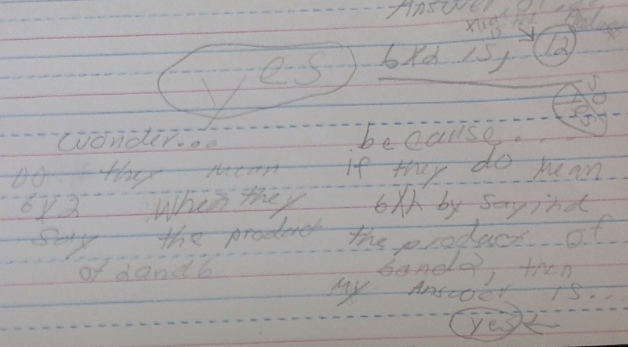 Answer
yes
6x2 is, 12
wonder... because...
Do they mean if they do mean
6x2 when they 6x2 by sayind
say the product the product of
of 2 and 6 6 and 2, then
My Answer is...
yes